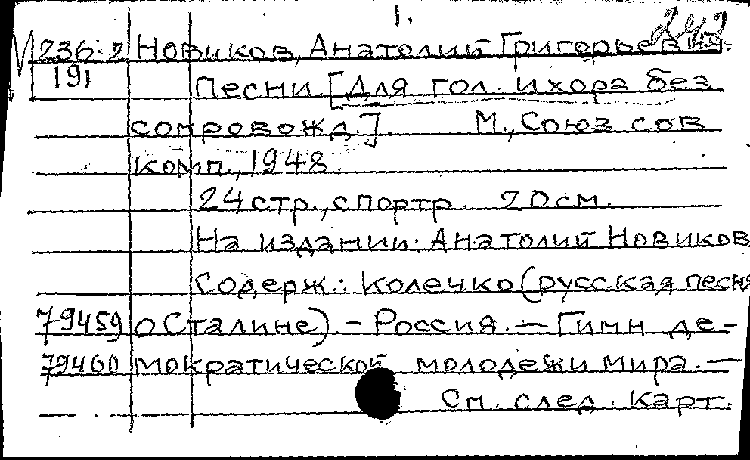 1.
242
М 236-2 Новиков, Анатолий Григорьевич
191 Песни [Для гол. и хора без
сопровожд]. М., Союз сов
комп., 1948.
24 стр., с портр. 20 см.
На издании: Анатолий Новиков
Содерж.: Колечко (русская песня
79459 о Сталине) – Россия. – Гимн де-
79460 мократической молодежи мира. –
См. след. карт.